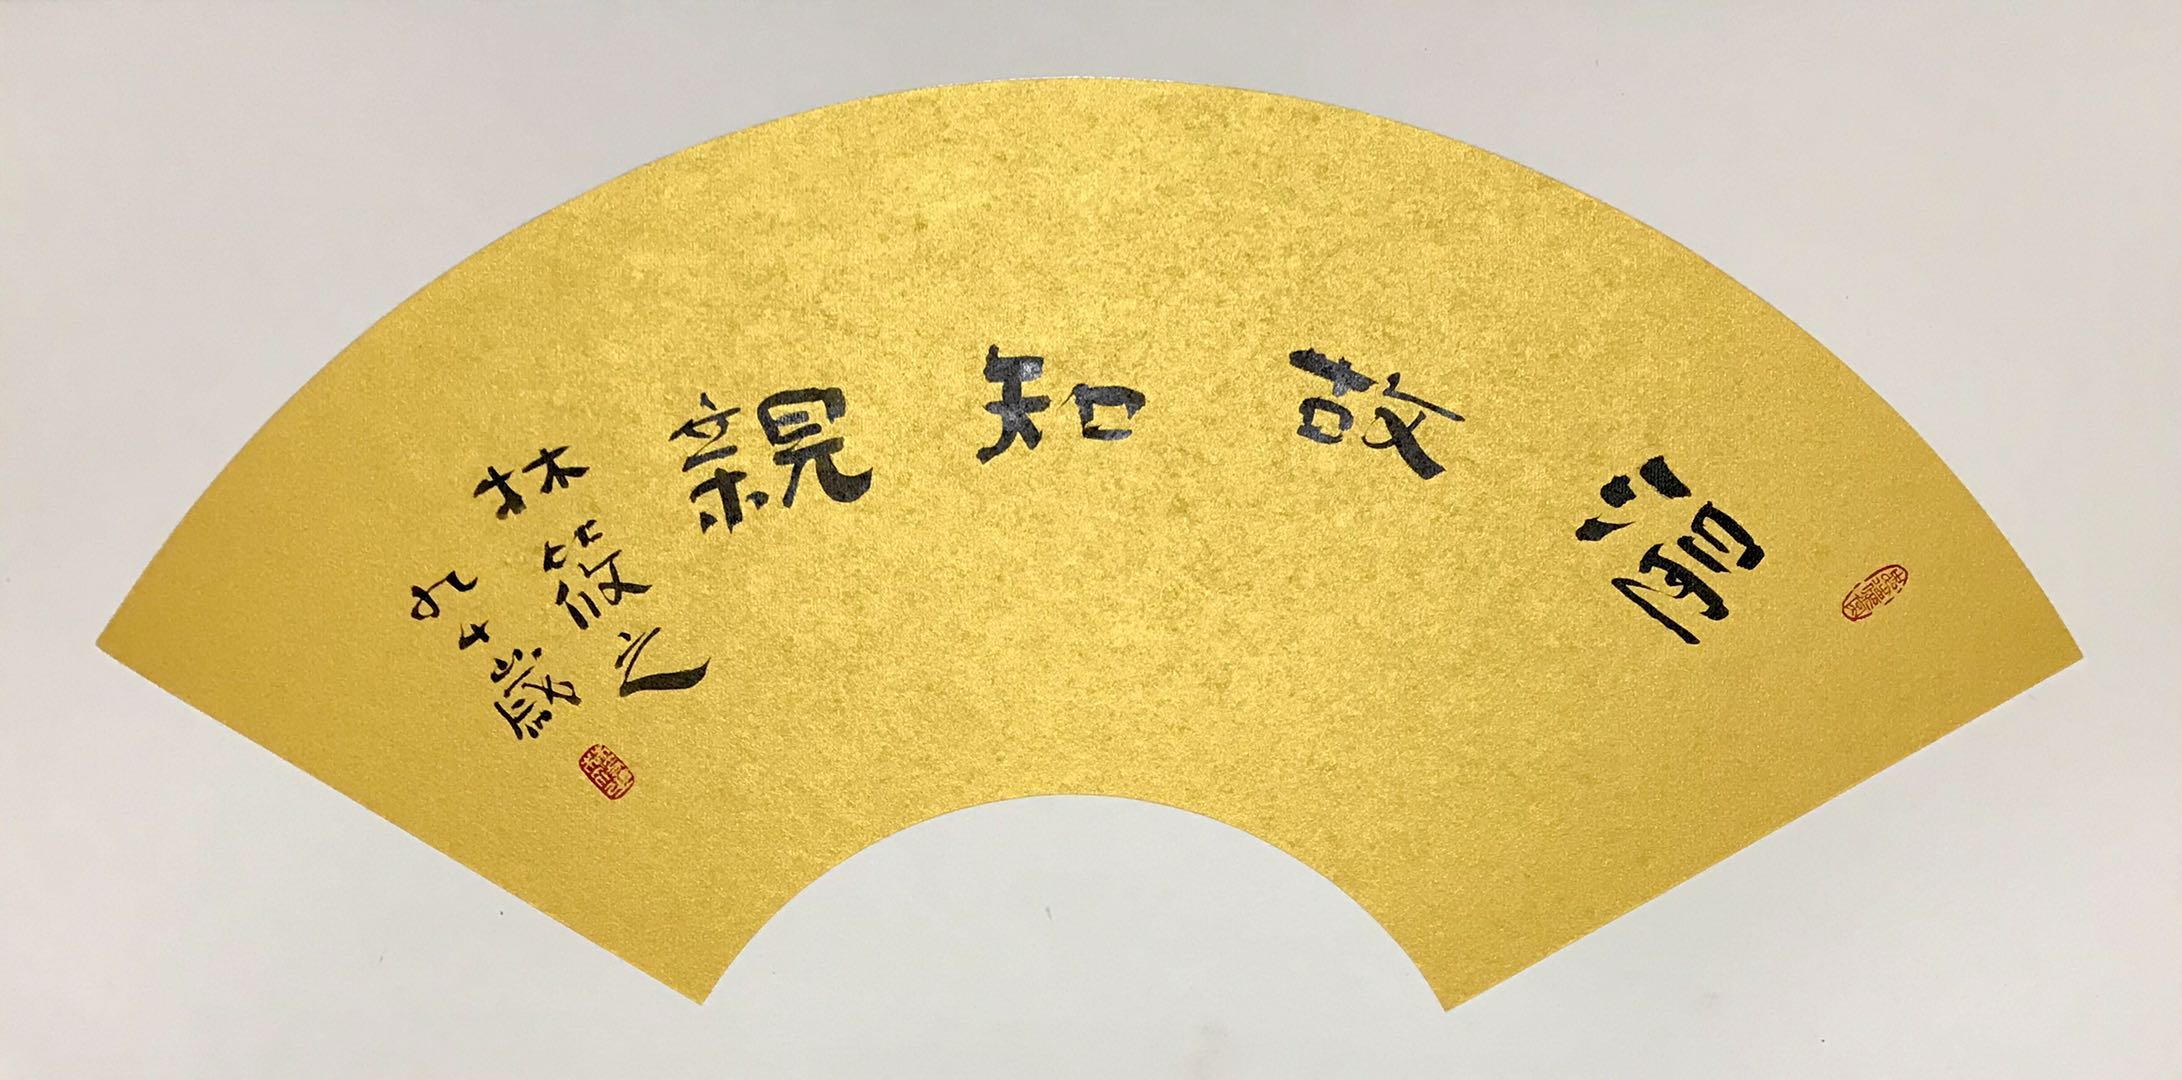 温故知親
林筱之
九十歲